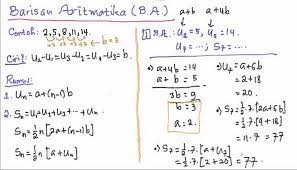 Barisan Aritmatika (B.A.)
Contoh: 2, 5, 8, 11, 14.
+3 +3 +3 +3 → b = 3
Ciri²: U₂-U₁ = U₃-U₂ = U₄-U₃ = b
Rumus:
1. Uₙ = a+(n-1)b
2. Sₙ = U₁+U₂+U₃+⋯+Uₙ
Sₙ = ½n [2a+(n-1)b]
Sₙ = ½n [a+Uₙ]
a+b a+4b
1 B.A. U₂ = 5, U₅ = 14.
U₇ = ⋯; S₇ = ⋯.
•) a+4b = 14
a+b = 5
3b = 9
b = 3
a = 2.
•) U₇ = a+6b
= 2+18
= 20.
•) S₇ = ½·7·[2a+6b]
= ½·7·[4+18]
= 11·7 = 77
•) S₇ = ½·7·[a+U₇]
= ½·7·[2+20] = 77.